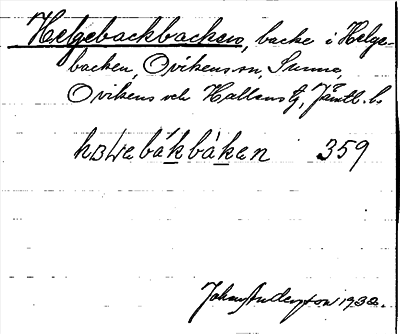 Helgebackbacken, backe i Helge-
backen, Ovikens sn, Sunne,
Ovikens och Hallens tg, Jämtl. l.
bákbàken 359
Johan Anderzon 1932.